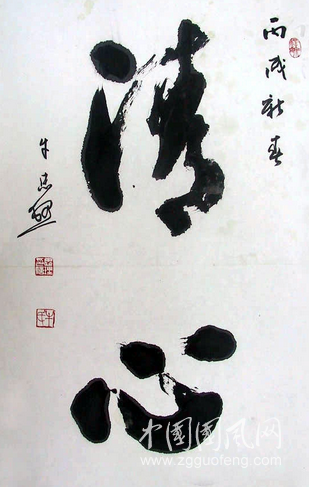 丙戌新春
清心
中国国风网
www.zgguofeng.com